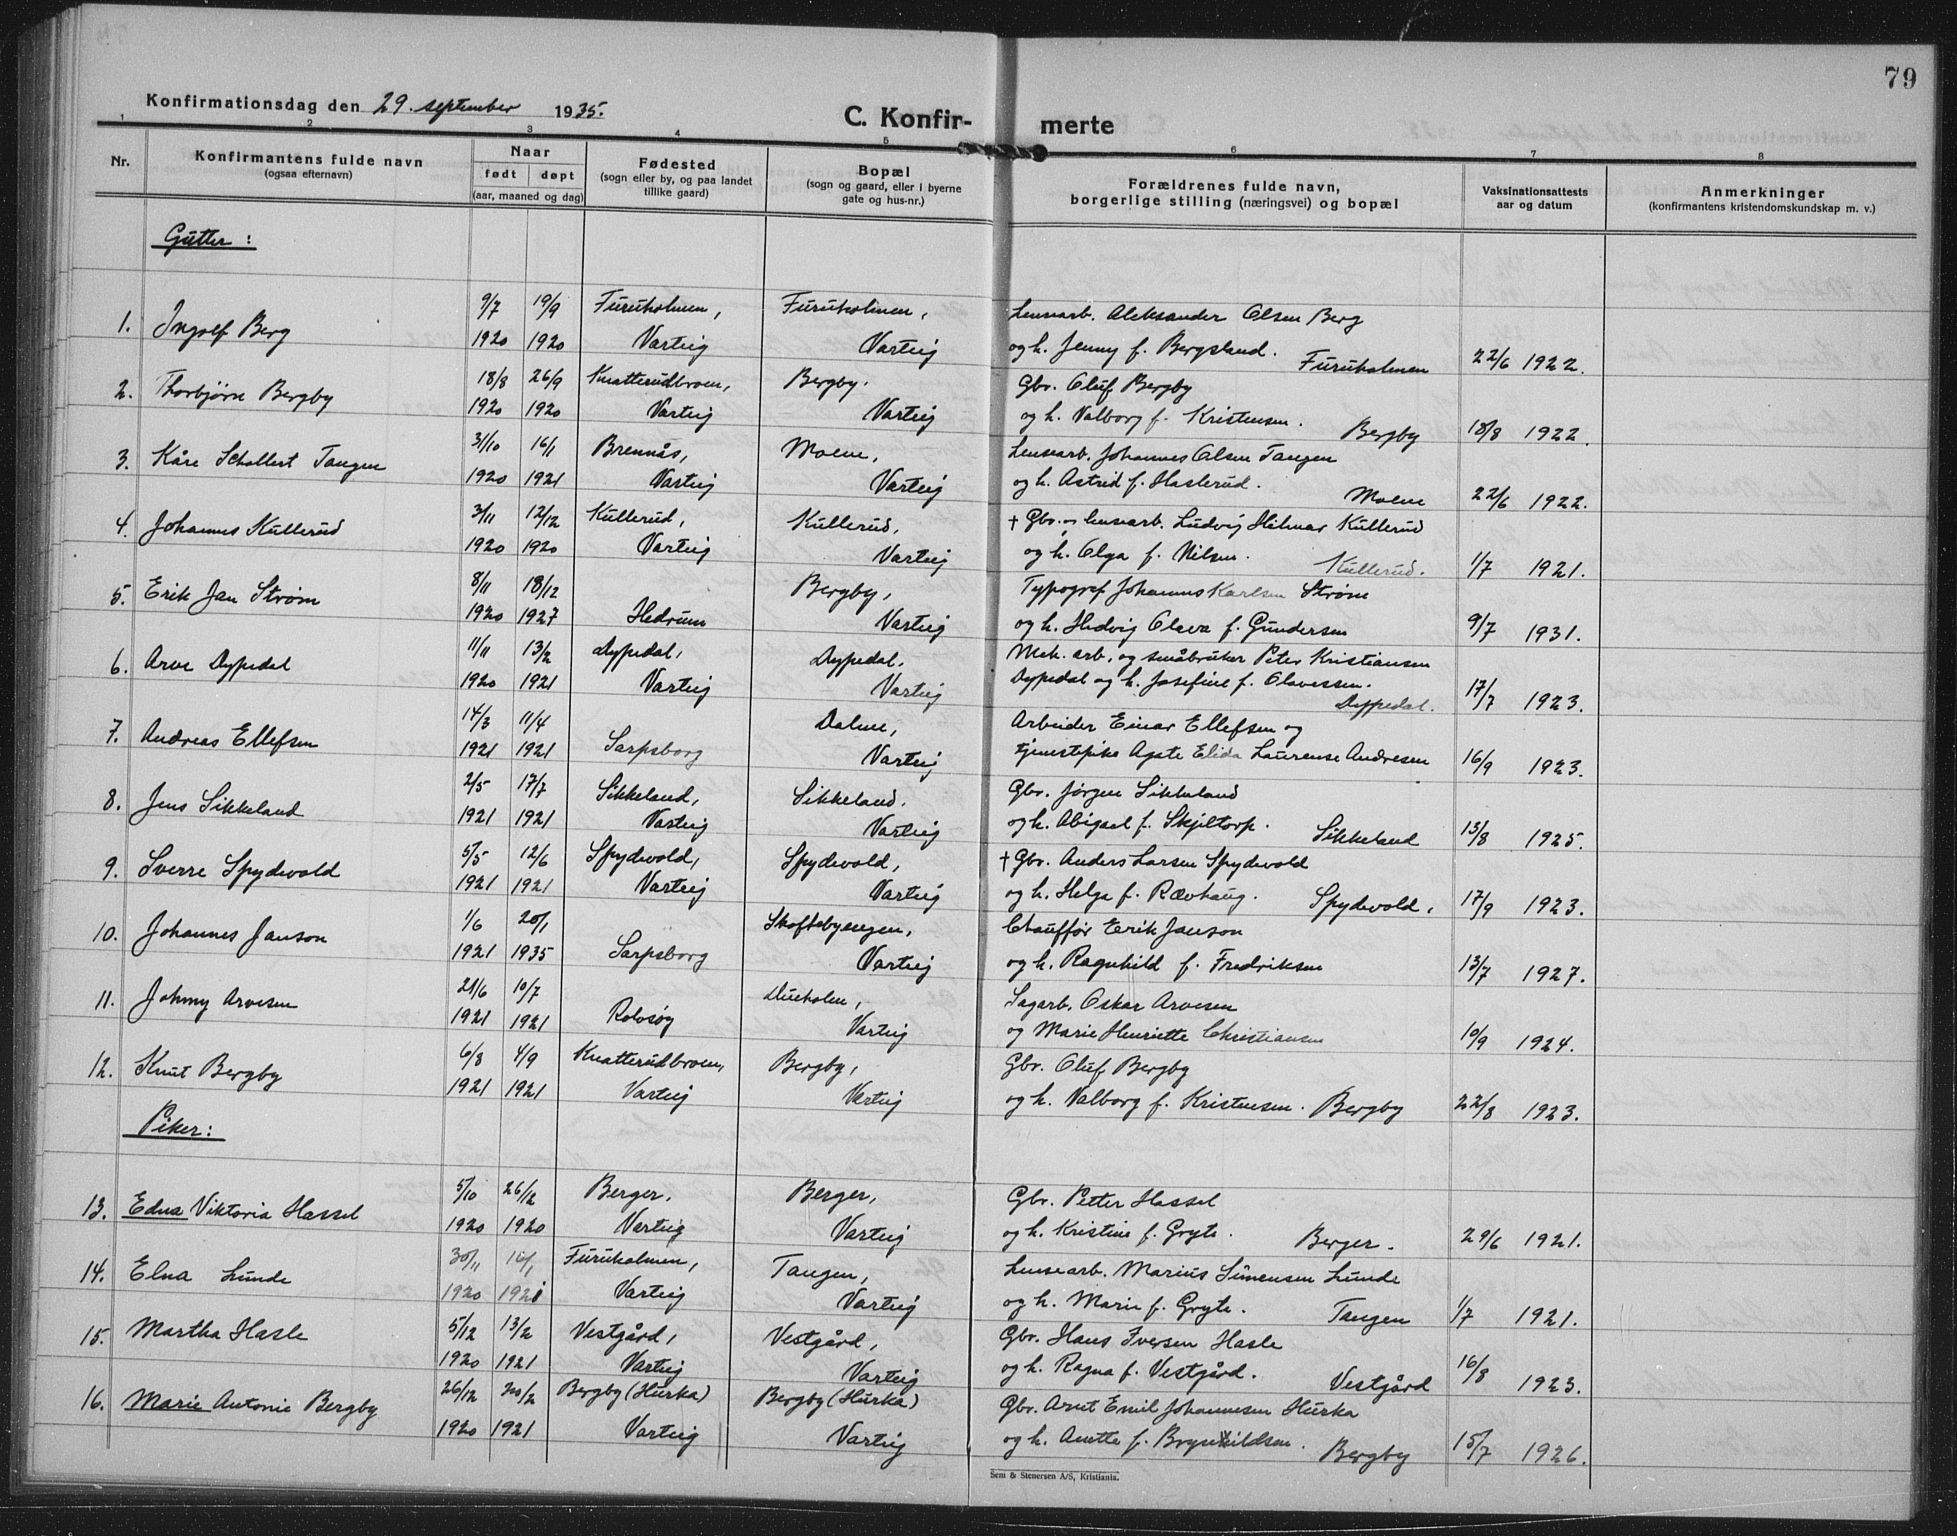 79
Konfirmationsdag den 29. september 1935.
C. Konfir- merte
1 2 3 4 5 6 7 8
Nr.
Konfirmantens fulde navn
(ogsaa efternavn)
Naar
født døpt
(aar, maaned og dag)
Fødested
(sogn eller by, og paa landet
tillike gaard)
Bopæl
(sogn og gaard, eller i byerne
gate og hus-nr.)
Forældrenes fulde navn,
borgerlige stilling (næringsvei) og bopæl
Vaksinationsattests
aar og datum
Anmerkninger
(konfirmantens kristendomskundskap m. v.)
Gutter:
9/7 19/9 Furuholmen, Furuholmen, Lensearb. Aleksander Olsen Berg
1. Ingolf Berg 1920 1920 Varteig Varteig og h. Jenny f. Bergsland. Furuholmen 22/6 1922.
18/8 26/9 Knatterudbroen, Bergby. Gbr. Oluf Bergby
2. Thorbjørn Bergby 1920 1920 Varteig Varteig og h. Valborg f. Kristensen. Bergby 18/8 1922.
31/10 16/1 Brennås, Moene, Lensearb. Johannes Olsen Tangen
3. Kåre Schallert Tangen 1920 1921 Varteig Varteig og h. Astrid f. Haslerud. Moene 22/6 1922.
3/11 12/12 Kullerud, Kullerud, † Gbr. og lensearb. Ludvig Hilmar Kullerud
4. Johannes Kullerud 1920 1920 Varteig Varteig og h. Olga f. Nilsen. Kullerud. 1/7 1921.
8/11 18/12 Bergby, Typograf Johannes Karlsen Strøm
5. Erik Jan Strøm 1920 1927 Hedrum Varteig og h. Hedvig Olava f. Gundersen 9/7 1931.
11/11 13/2 Dypedal, Dypedal. Mek. arb. og småbruker Peter Kristiansen
6. Arve Dypedal 1920 1921 Varteig Varteig Dypedal og h. Josefine f. Olavessen. Dypedal. 17/7 1923.
14/3 11/4 Dalene, Arbeider Einar Ellefsen og
7. Andreas Ellefsen 1921 1921 Sarpsborg Varteig tjenestepike Agate Elida Laurense Andresen 16/9 1923.
2/5 17/7 Sikkeland, Sikkeland. Gbr. Jørgen Sikkeland
8. Jens Sikkeland 1921 1921 Varteig Varteig og h. Abigael f. Skjeltorp. Sikkeland 13/8 1925.
5/5 12/6 Spydevold, Spydevold, † Gbr. Anders Larsen Spydevold
9. Sverre Spydevold 1921 1921 Varteig Varteig og h. Helga f. Rævhaug. Spydevold, 17/9 1923.
1/6 20/1 Skoftebyengen, Chauffør Erik Janson
10. Johannes Janson 1921 1935 Sarpsborg Varteig og h. Ragnhild f. Fredriksen 13/7 1927.
21/6 10/7 Sagarb. Oskar Arvesen
11. Johnny Arvesen 1921 1921 Rolvsøy Varteig og Marie Henriette Christiansen 10/9 1924.
6/8 4/9 Knatterudbroen, Bergby, Gbr. Oluf Bergby
12. Knut Bergby 1921 1921 Varteig Varteig og h. Valborg f. Kristensen. Bergby 22/8 1923.
Piker:
5/10 26/12 Berger, Berger, Gbr. Petter Hassel
13. Edna Viktoria Hassel 1920 1920 Varteig Varteig og h. Kristine f. Gryte. Berger. 29/6 1921.
30/11 Furuholmen, Tangen, Lensearb. Marius Simensen Lunde
14. Elna Lunde 1920 1921 Varteig Varteig og h. Marie f. Gryte. Tangen 1/7 1921.
5/12 13/2 Vestgård, Vestgård, Gbr. Hans Iversen Hasle
15. Martha Hasle 1920 1921 Varteig Varteig og h. Ragna f. Vestgård. Vestgård 16/8 1923.
26/12 20/2 Bergby (Hurka) Bergby (Hurka) Gbr. Arnt Emil Johannesen Hurka
16. Marie Antonie Bergby 1920 1921 Varteig Varteig og h. Anette f. Brynhildsen. Bergby 15/7 1926.
Sem & Stenersen A/S, Kristiania.